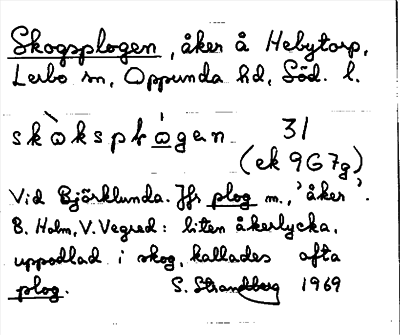 Skogsplogen, åker å Hebytorp,
Lerbo sn, Oppunda hd, Söd. l.
skὼkspłώgen 31
(ek 9G7g)
Vid Björklunda. Jfr plog m., 'åker'.
B. Holm, V. Vegred: liten åkerlycka,
uppodlad i skog, kallades ofta
plog. S. Strandberg 1969